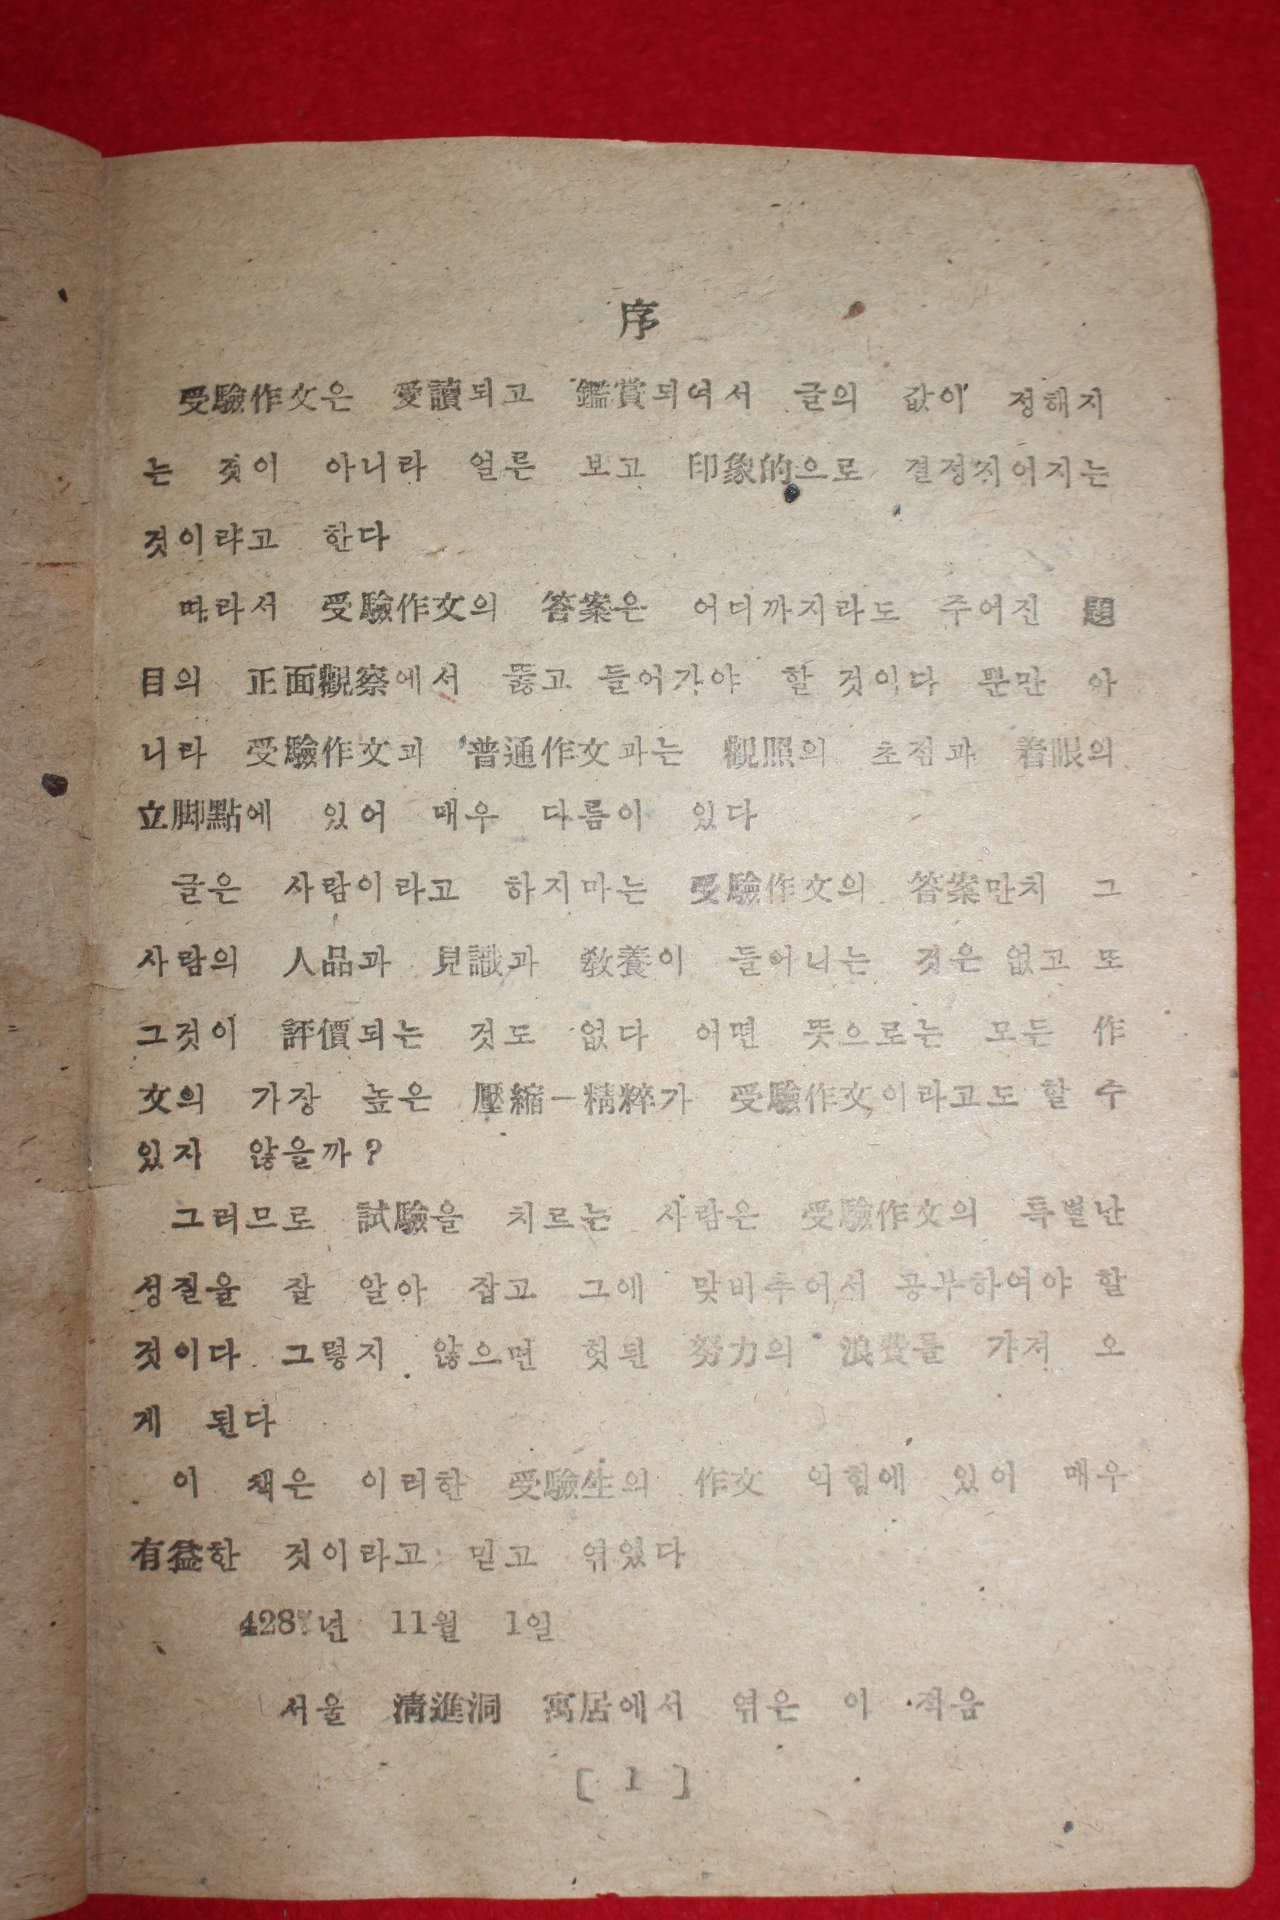 序
受驗作文은 愛讀되고 鑑賞되여서 글의 값이 정해지
는 것이 아니라 얼른 보고 印象的으로 결정지어지는
것이라고 한다
따라서 受驗作文의 答案은 어디까지라도 주어진 題
目의 正面觀察에서 뚫고 들어가야 할 것이다 뿐만 아
니라 受驗作文과 普通作文과는 觀照의 초점과 着眼의
立脚點에 있어 매우 다름이 있다
글은 사람이라고 하지마는 受驗作文의 答案만치 그
사람의 人品과 見識과 敎養이 들어나는 것은 없고 또
그것이 評價되는 것도 없다 어떤 뜻으로는 모든 作
文의 가장 높은 壓縮—精粹가 受驗作文이라고도 할 수
있지 않을까?
그러므로 試驗을 치르는 사람은 受驗作文의 특별난
성질을 잘 알아 잡고 그에 맞비추어서 공부하여야 할
것이다 그렇지 않으면 헛된 努力의 浪費를 가져 오
게 된다
이 책은 이러한 受驗生의 作文 익힘에 있어 매우
有益한 것이라고 믿고 엮었다
11월 1일
서울 淸進洞 寓居에서 엮은 이 적음
[ 1 ]